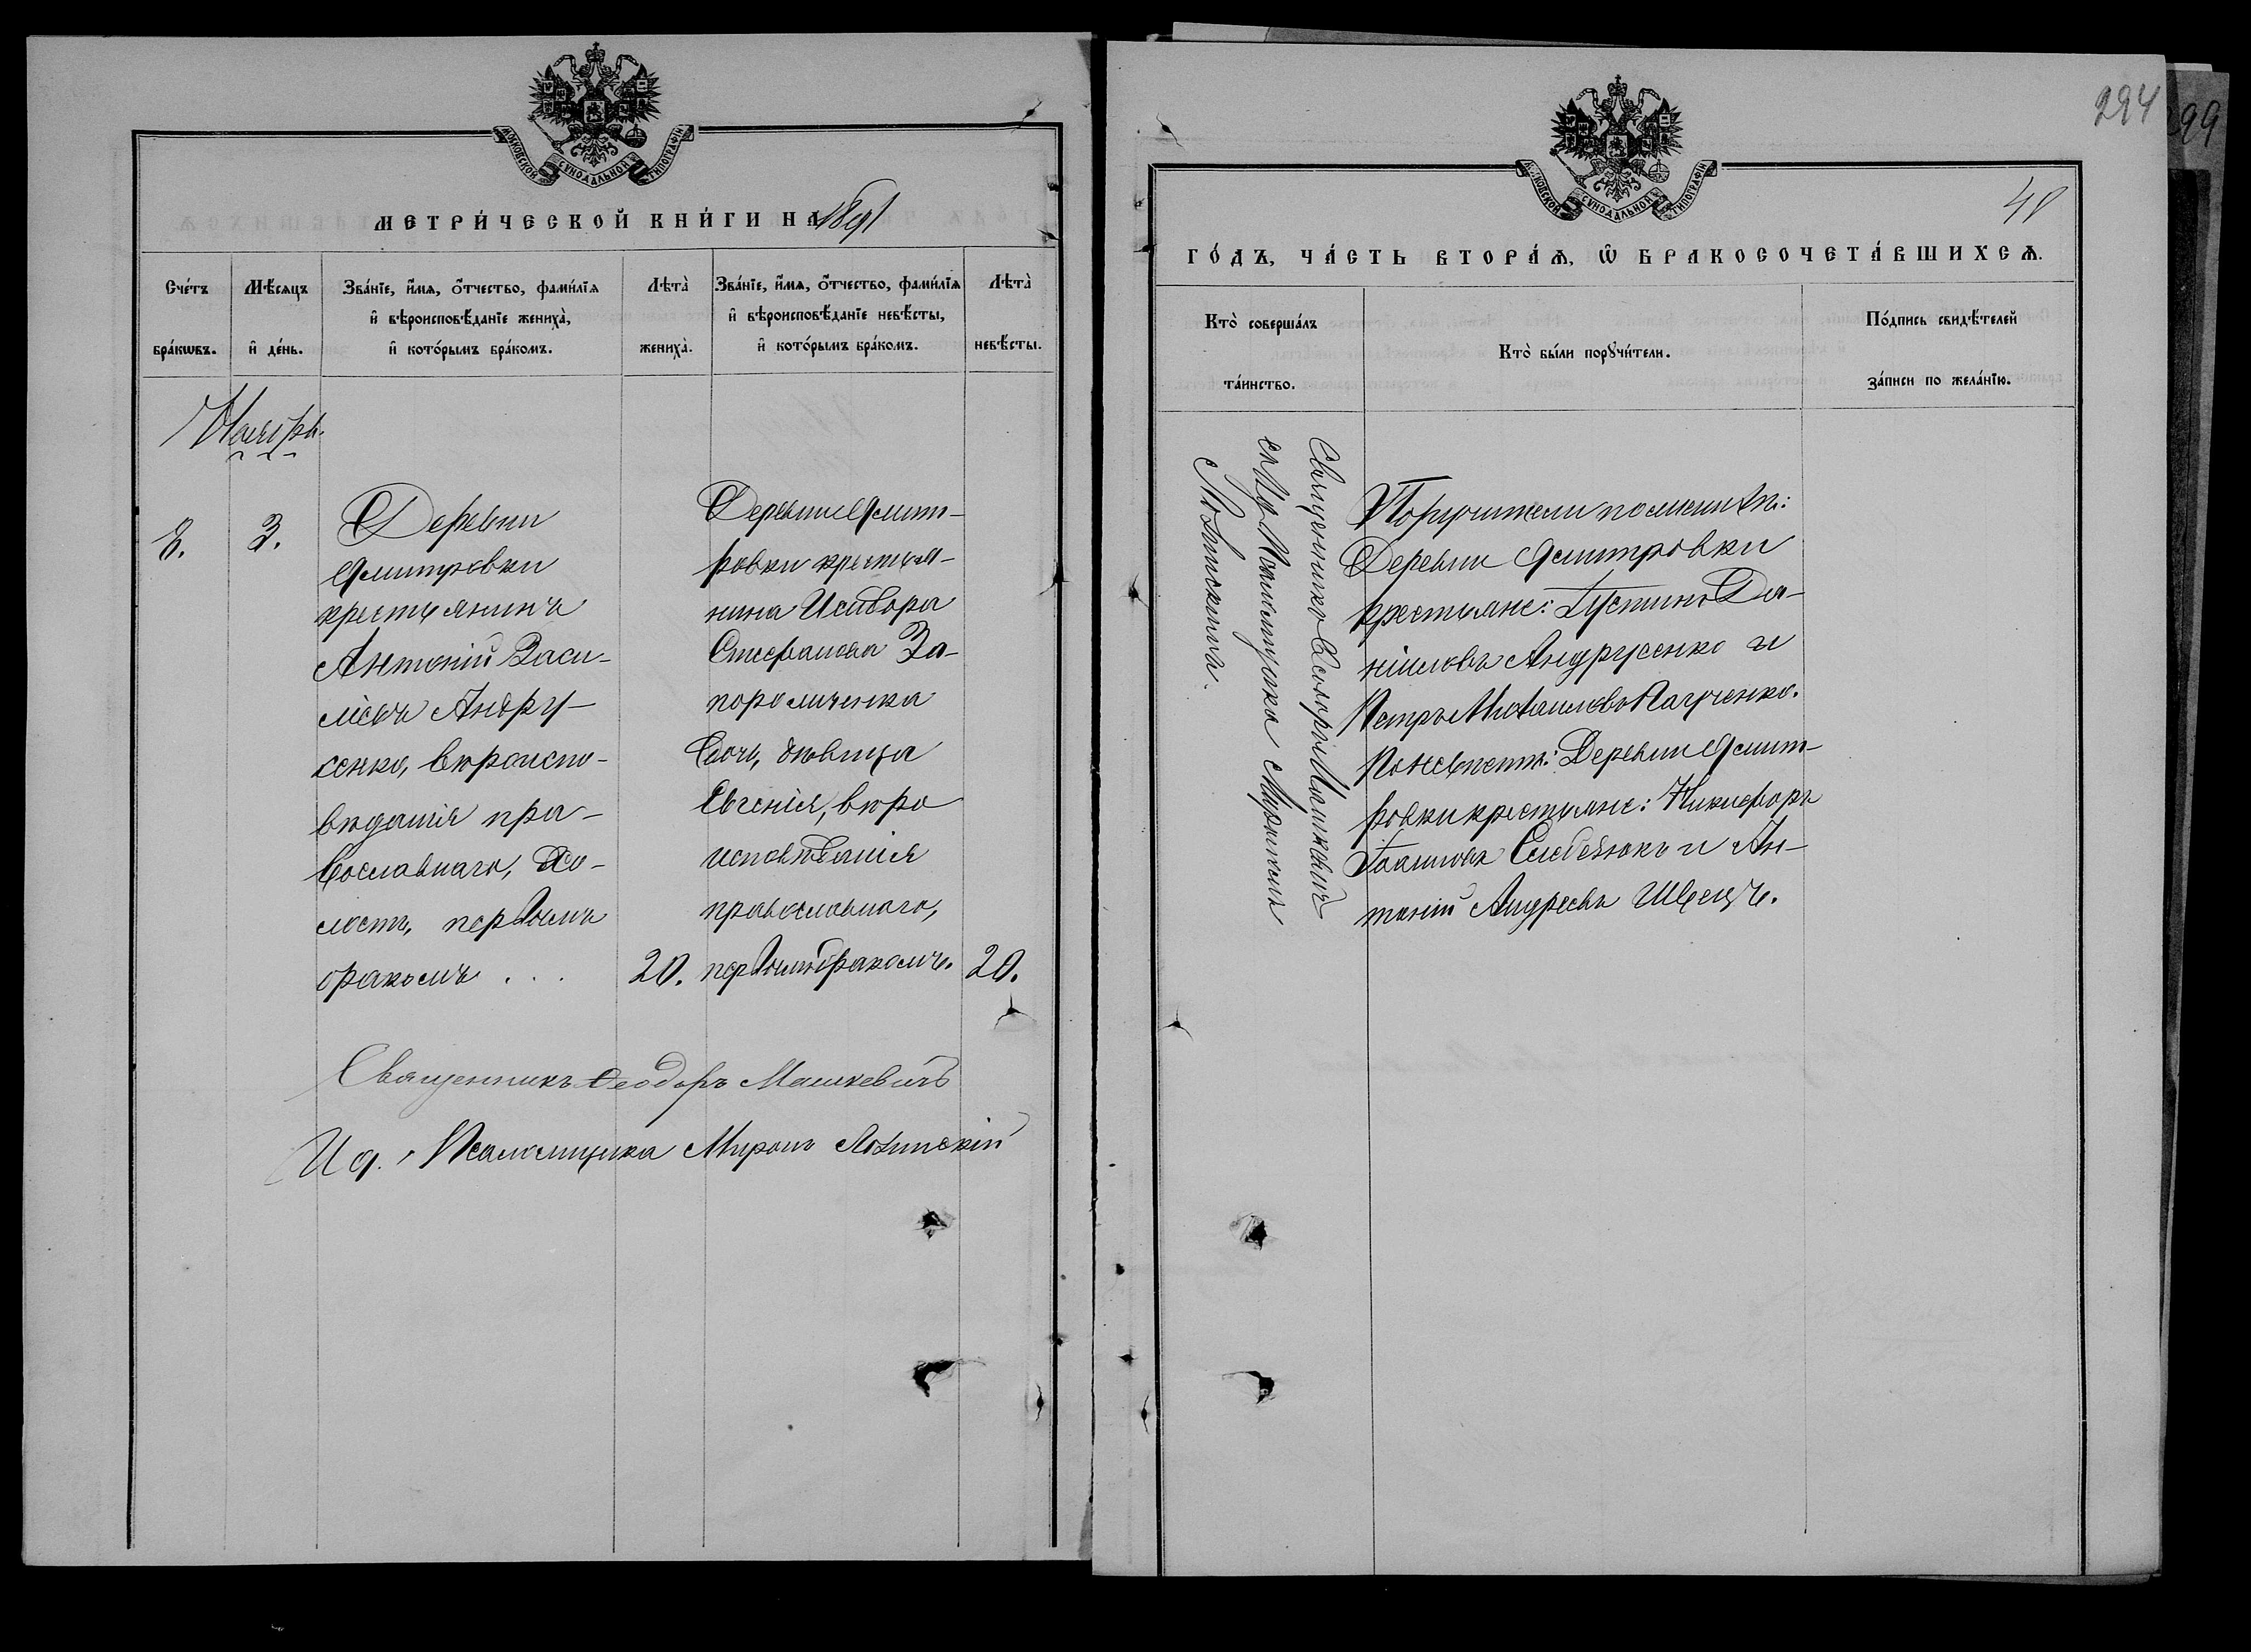 МОСКОВСКОЙ СѴНОДАЛЬНОЙ ТИПОГРАФІИ
МЕТРИ́ЧЕСКОЙ КНИ́ГИ НА 1891
Сче́тъ бра́кѡвъ.
Мѣ́сяцъ и҆ де́нь.
Зва́нїе, и҆́мѧ, ѻ҆́тчество, фами́лїѧ
и҆ вѣроисповѣ́данїе жениха̀,
и҆ кото́рымъ бра́комъ.
Лѣта̀ жениха̀.
Зва́нїе, и҆́мѧ, ѻ҆́тчество, фами́лїѧ
и҆ вѣроисповѣ́данїе невѣ́сты,
и҆ кото́рымъ бра́комъ.
Лѣта̀ невѣ́сты.
Ноябрь.
8.
3.
Деревни
Дмитровки
крестьянинъ
Антоній Васи-
ліевъ Андру-
сенко, вѣроиспо-
вѣданія пра-
вославнаго, хо-
лостъ, первымъ
бракомъ . . .
20.
Деревни Дмит-
ровки крестья-
нина Исидора
Стефанова За-
порожченка
дочь, дѣвица
Евгенія, вѣро
исповѣданія
православнаго,
первымъ бракомъ.
20.
Священникъ Ѳеодоръ Машкевичъ
И д. Псаломщика Миронъ Лозинскій
294
99
МОСКОВСКОЙ СѴНОДАЛЬНОЙ ТИПОГРАФІИ
ГО́ДЪ, ЧА́СТЬ ВТОРА́Ѧ, Ѽ БРАКОСОЧЕТА́ВШИХСѦ.
Кто̀ соверша́лъ та́инство.
Кто̀ бы́ли порꙋчи́тели.
По́дпись свидѣ́телей за́писи по жела́нїю.
Священникъ Ѳеодоръ Машкевичъ
съ И д Псаломщика Мирономъ
Лозинскимъ.
Поручители по женихѣ:
Деревни Дмитровки
крестьяне: Іустинъ Да-
ніиловъ Андрусенко и
Петръ Михаиловъ Панченко.
По невѣстѣ: Деревни Дмит-
ровки крестьяне: Никифоръ
Іоанновъ и Ан-
тоній Андреевъ Швецъ.